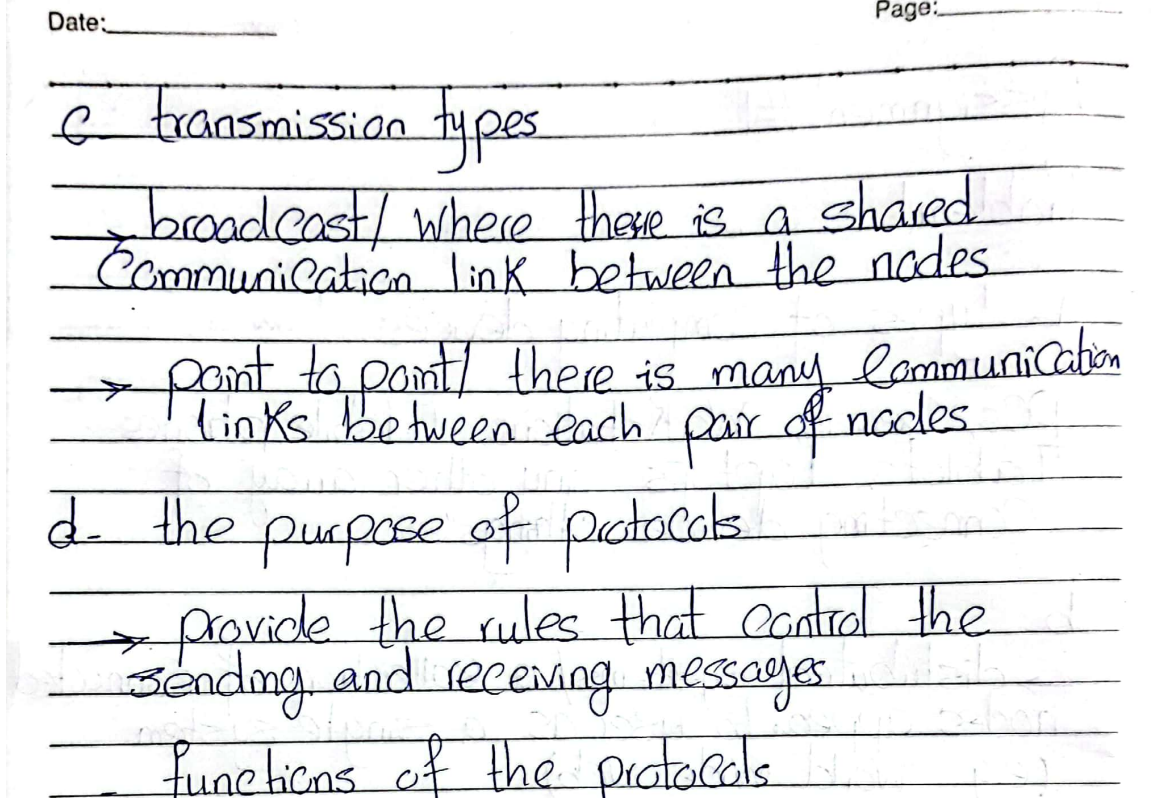 Date:
Page:
c- transmission types
broadcast/ where there is a shared
Communication link between the nodes
→ point to point/ there is many Communication
links between each pair of nodes
d- the purpose of protocols
→ provide the rules that control the
sending and receiving messages
- functions of the protocols